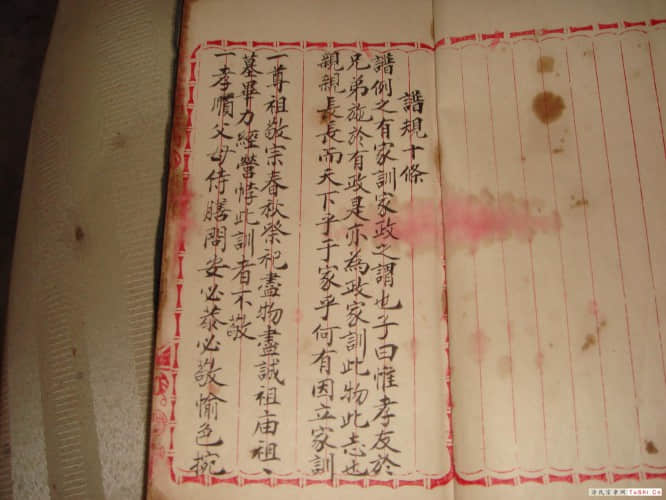 譜規十條
譜例之有家訓家政之謂也子曰惟孝友於
兄弟施於有政是亦為政家訓此物此志也
親親長長而天下乎于家乎何有因立家訓
一尊祖敬宗春秋祭祀盡物盡誠祖庙祖、
墓畢力經營悖此訓者不敬
一孝順父母侍膳問安必恭必敬愉色捥